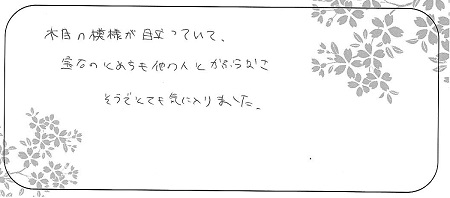 木目の模様が目立っていて、
他の人とかぶらなさ
そうでとても気に入りました。